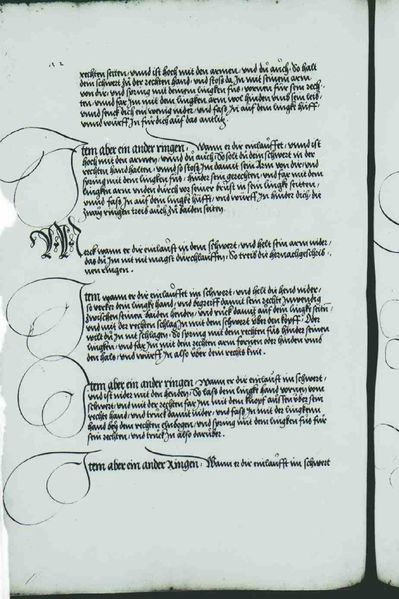 rechten seitten, vnnd ist hoch mit den armen, vnd du auch, So halt
dem schwert In der rechten hand, vnd stoß da In mit seinem arm
von dir, vnd spring mit deinem lingken fuß, vornen für sein rech-
ten, vnnd far In mit dem lingken arm wol hinden vmb sein leib,
vnnd senck dich ein wenig nider, vnd faß In auf dem lingke hüff,
vnnd würff In für dich auf das antlitz.
Item aber ein ander ringen, Wann er dir einlaufft, vnnd ist
hoch mit den armen, vnnd du auch, So halt du dein schwert in der
rechten hand hatten, vnnd so stoß In damit sein Arm von dir vnd
spring mit dem lingken fuß, hinder sein gerechten, vnd far mit dem
lingken arm vnden durch vor seiner brust in sein lingke seitten,
vnnd faß In auf dem lingke hüff, vnd würff In hinder dich, die
zway ringen treib auch zu baiden seiten,
Merck wann er dir einlaufft in dem schwert, vnd helt sein arm nider,
das du Im nit magst durchlauffen, So treib dis hernachgeschrib-
nen ringen.
Item wann er dir einlauffet im schwert, vnd helt die hend nider,
so verker dein lingke hand, vnd begreyff damit sein rechte Inwendig
zwischen seinen baiden henden, vnd ruck damit auf dein lingke seiten,
vnd mit der rechten schlag In mit dem schwert über den kopff, Oder
woll du In nit schlagen, So spring mit dem rechten fuß hinder seinen
lingken, vnd far In mit dem rechten arm fornen oder hinden vmb
den hals, vnd würff In also über dein rechts knie.
Item aber ein ander ringen, Wann er dir einlaufft im schwert,
vnd ist nider mit den henden, So laß dein lingke hand varen, vom
schwert, vnd mit der rechten far Im mit dem knopff aussen über sein
rechte hand, vnd truck damit nider, vnd faß In mit der lingkenn
hand bey dem rechten elnbogen, vnd spring mit dem lingken fuß für
sein rechten, vnd truck In also darüber.
Item aber ein ander Ringen, Wann er dir einlaufft im schwert